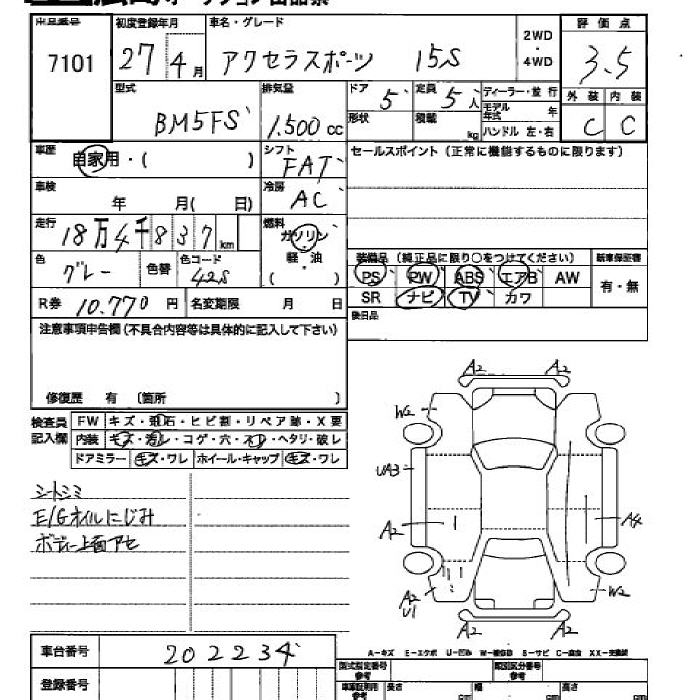 出品番号 初度登録年月 車名・グレード 2WD・4WD 評価点
7101 27年4月 アクセラスポーツ 15S 3.5
型式 排気量 ドア 5 定員 5人 ディーラー・並行 外装 内装
BM5FS 1,500cc 形状 積載 kg モデル年式 年 ハンドル 左・右 C C
車歴 自家用・( ) シフト FAT セールスポイント(正常に機能するものに限ります)
車検 年 月( 日) 冷房 AC
走行 18万4千837km 燃料 ガソリン・軽油 ( )
装備品(純正品に限り○をつけてください) 新車保証書
色 グレー 色替 色コード 42S
PS PW ABS エアB AW 有・無
SR ナビ TV カワ
R券 10,770円 名変期限 月 日 後日品
注意事項申告欄(不具合内容等は具体的に記入して下さい)
修復歴 有 〔箇所 〕
検査員記入欄 FW キズ・飛石・ヒビ割・リペア跡・X要
内装 キズ・汚レ・コゲ・穴・ヘタリ・破レ
ドアミラー キズ・ワレ ホイール・キャップ キズ・ワレ
シートシミ
E/Gオイルにじみ
ボディー上面アセ
A2 A2
W2 A2
UA3
A2 A4
A2 U1 W2
A2 A2
A-キズ E-エクボ U-凹ミ W-補修跡 S-サビ C-腐食 XX-交換跡
車台番号 202234
型式指定番号 類別区分番号
登録番号
長さ cm 幅 cm 高さ cm